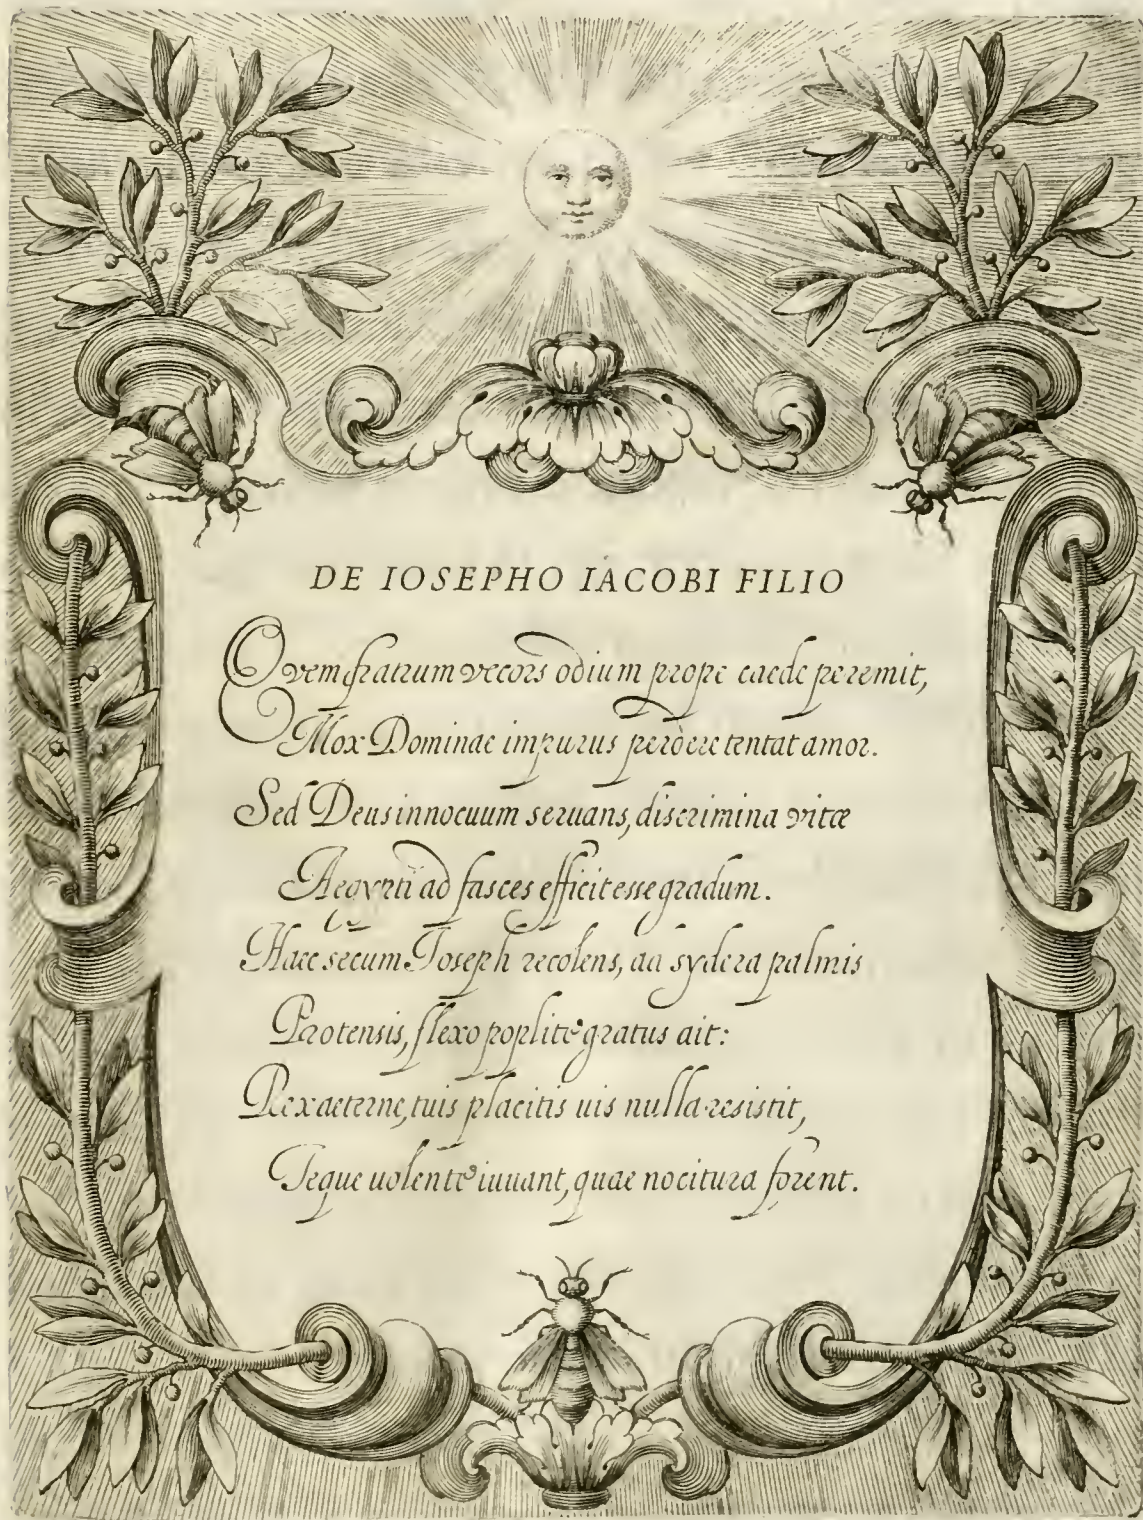 DE IOSEPHO IACOBI FILIO
Quem fratrum vecors odium prope caede peremit,
Mox Dominae impurus perdere tentat amor.
Sed Deus innocuum seruans, discrimina vitæ
Aegypti ad fasces efficit esse gradum.
Haec secum Ioseph recolens, ad sydera palmis
Protensis, flexo poplite gratus ait:
Rex aeterne, tuis placitis uis nulla resistit,
Teque uolente iuuant, quae nocitura forent.